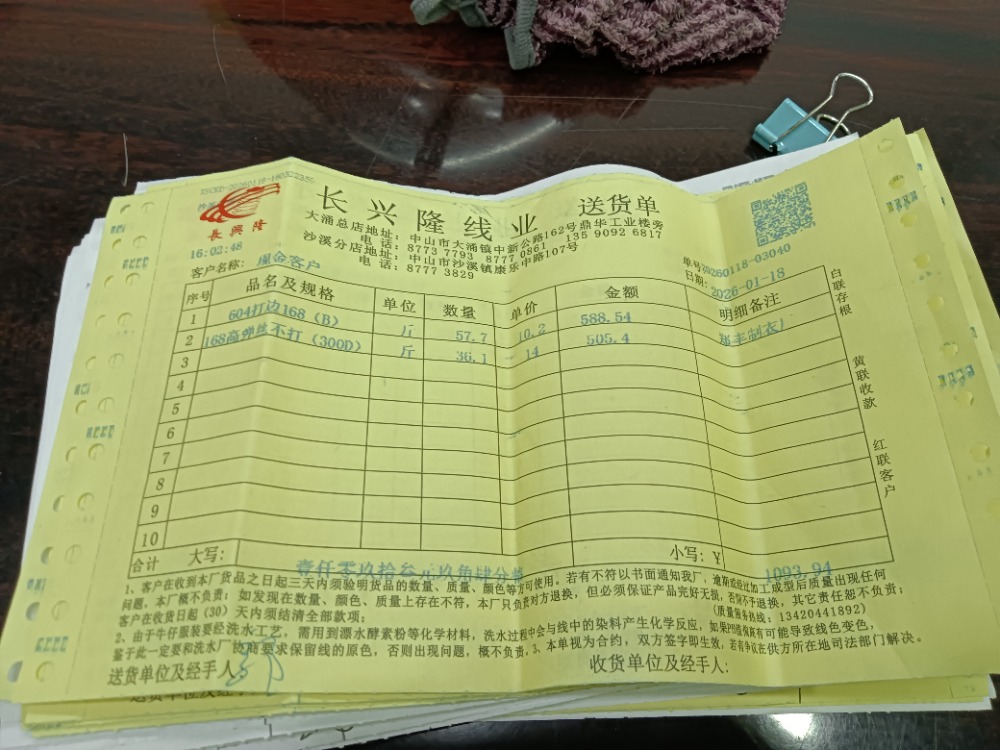 长兴隆线业 送货单
長興隆
大涌总店地址：中山市大涌镇中新公路162号鼎华工业楼旁
电话：8773 7793 8777 0861 135 9092 6817
沙溪分店地址：中山市沙溪镇康乐中路107号
电话：8777 3829
16:02:48
客户名称：现金客户
单号20260118-03040
日期：2026-01-18
序号 品名及规格 单位 数量 单价 金额 明细备注
1 604打边168（B） 斤 57.7 10.2 588.54
2 168高弹丝不打（300D） 斤 36.1 14 505.4
3
4
5
6
7
8
9
10
合计 大写：壹仟零玖拾叁元玖角肆分整 小写：¥ 1093.94
白联存根
黄联收款
红联客户
1、客户在收到本厂货品之日起三天内须验明货品的数量、质量、颜色等方可使用。若有不符以书面通知我厂，逾期或经过加工成型后质量出现任何
问题，本厂概不负责；如发现在数量、颜色、质量上存在不符，本厂只负责对方退换，但必须保证产品完好无损，否则不予退换，其它责任恕不负责；
客户在收货日起（30）天内须结清全部款项； （质量服务热线：13420441892）
2、由于牛仔服装要经洗水工艺，需用到漂水酵素粉等化学材料，洗水过程中会与线中的染料产生化学反应，如果PH值偏高有可能导致线色变色，
鉴于此一定要和洗水厂协商要求保留线的原色，否则出现问题，概不负责。3、本单视为合约，双方签字即生效，若有争议在供方所在地司法部门解决。
送货单位及经手人： 收货单位及经手人：